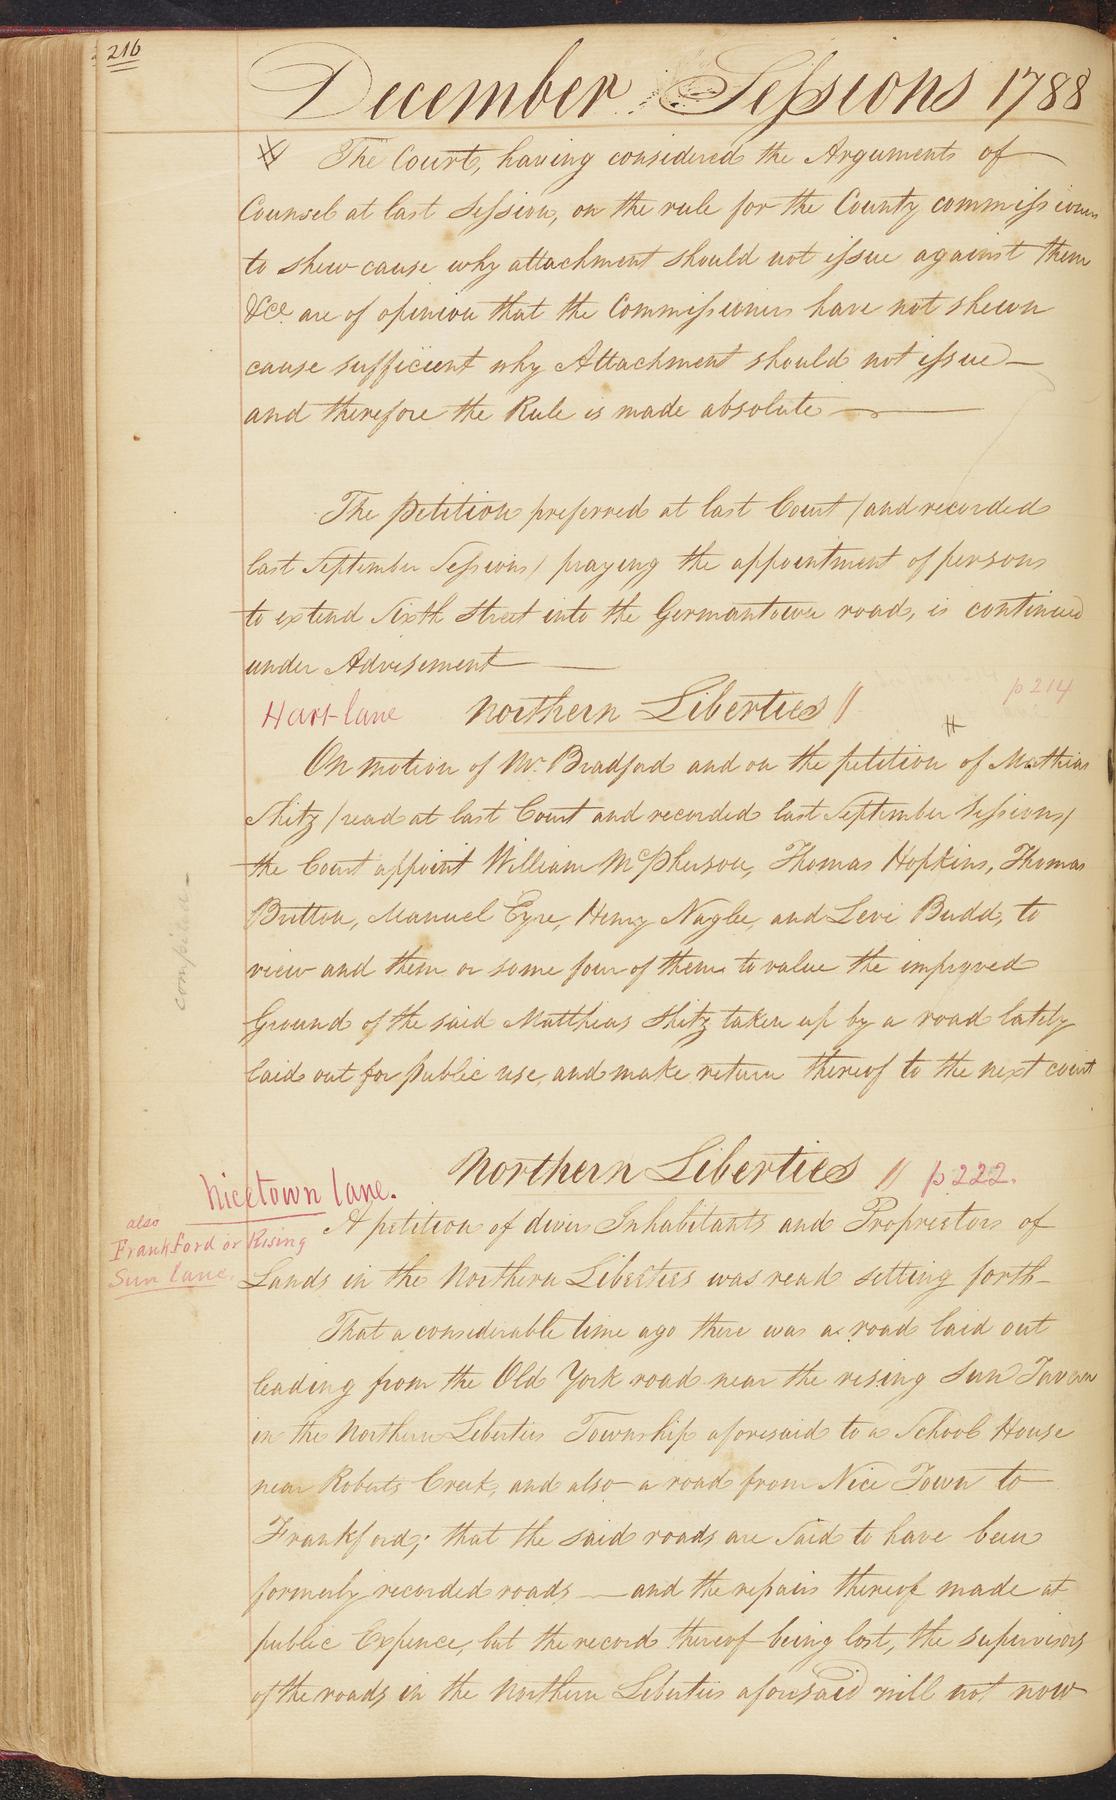 216
December Sessions 1788
The Court, having considered the Arguments of
Counsel at last Session, on the rule for the County commissioners
to shew cause why attachment should not issue against them
&ce. are of opinion that the Commissioners have not shewn
cause sufficient why Attachment should not issue —
and therefore the Rule is made absolute —
The petition preferred at last Court (and recorded
last September Sessions) praying the appointment of persons
to extend Sixth Street into the Germantown road, is continued
under Advisement —
Hart lane Northern Liberties // p 214
On motion of Mr. Bradford and on the petition # of Matthias
Shitz (read at last Court and recorded last September Sessions)
the Court appoint William McPherson, Thomas Hopkins, Thomas
Britton, Manuel Eyre, Henry Naglee, and Levi Budd, to
view and them or some four of them to value the improved
Ground of the said Matthias Shitz taken up by a road lately
laid out for public use, and make return thereof to the next court
compiled
Northern Liberties // p 222.
Nicetown lane.
also
Frankford or Rising
Sun lane.
A petition of divers Inhabitants and Proprietors of
Lands in the Northern Liberties was read setting forth —
That a considerable time ago there was a road laid out
leading from the Old York road near the rising Sun Tavern
in the Northern Liberties Township aforesaid to a School House
near Roberts Creek, and also a road from Nice Town to
Frankford; that the said roads are said to have been
formerly recorded roads — and the repairs thereof made at
public Expence, but the record thereof being lost, the supervisors
of the roads in the Northern Liberties aforesaid will not now